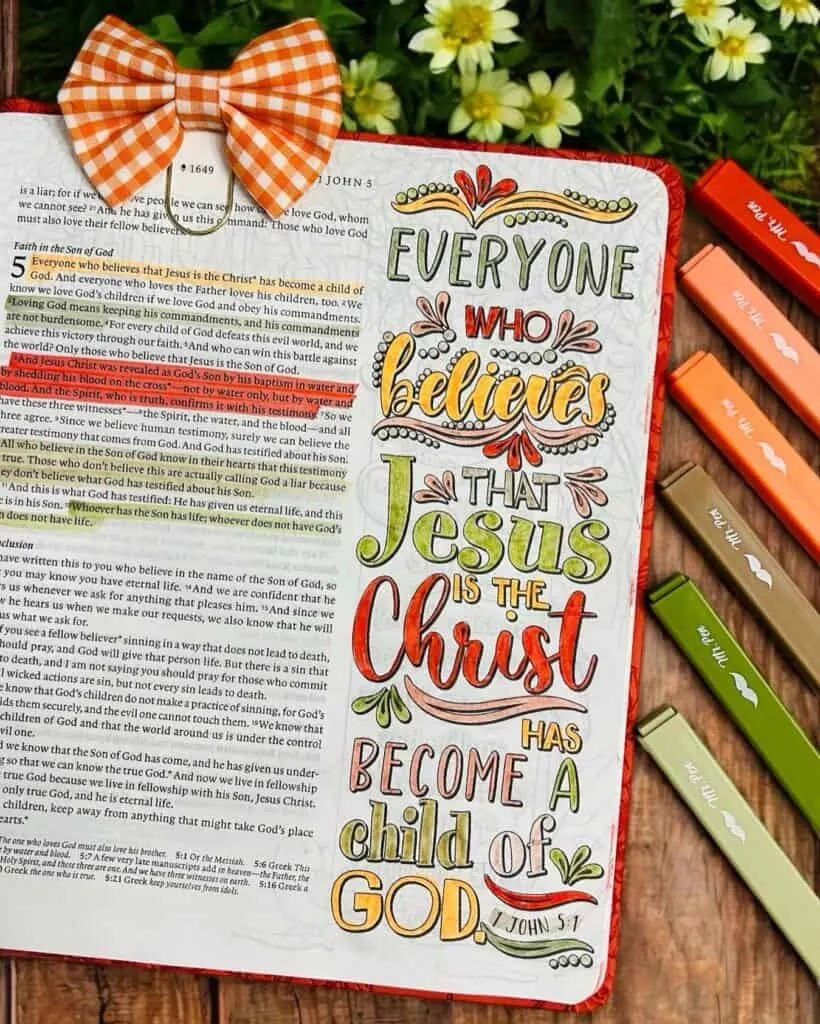 1649
1 JOHN 5
is a liar; for if we people we can see, how we love God, whom
we cannot see? 21 And he has given us this command: Those who love God
must also love their fellow believers.
Faith in the Son of God
5 Everyone who believes that Jesus is the Christ* has become a child of
God. And everyone who loves the Father loves his children, too. 2We
know we love God's children if we love God and obey his commandments.
3Loving God means keeping his commandments, and his commandments
are not burdensome. 4For every child of God defeats this evil world, and we
achieve this victory through our faith. 5And who can win this battle against
the world? Only those who believe that Jesus is the Son of God.
6And Jesus Christ was revealed as God's Son by his baptism in water and
by shedding his blood on the cross*—not by water only, but by water and
blood. And the Spirit, who is truth, confirms it with his testimony. 7So we
have these three witnesses*—8the Spirit, the water, and the blood—and all
three agree. 9Since we believe human testimony, surely we can believe the
greater testimony that comes from God. And God has testified about his Son.
All who believe in the Son of God know in their hearts that this testimony
true. Those who don't believe this are actually calling God a liar because
they don't believe what God has testified about his Son.
11And this is what God has testified: He has given us eternal life, and this
e is in his Son. 12Whoever has the Son has life; whoever does not have God's
n does not have life.
nclusion
have written this to you who believe in the name of the Son of God, so
you may know you have eternal life. 14And we are confident that he
rs us whenever we ask for anything that pleases him. 15And since we
w he hears us when we make our requests, we also know that he will
us what we ask for.
f you see a fellow believer* sinning in a way that does not lead to death,
hould pray, and God will give that person life. But there is a sin that
to death, and I am not saying you should pray for those who commit
l wicked actions are sin, but not every sin leads to death.
e know that God's children do not make a practice of sinning, for God's
lds them securely, and the evil one cannot touch them. 19We know that
children of God and that the world around us is under the control
evil one.
d we know that the Son of God has come, and he has given us under-
g so that we can know the true God.* And now we live in fellowship
true God because we live in fellowship with his Son, Jesus Christ.
only true God, and he is eternal life.
children, keep away from anything that might take God's place
earts.*
The one who loves God must also love his brother. 5:1 Or the Messiah. 5:6 Greek This
by water and blood. 5:7 A few very late manuscripts add in heaven—the Father, the
Holy Spirit, and these three are one. And we have three witnesses on earth. 5:16 Greek a
Greek the one who is true. 5:21 Greek keep yourselves from idols.
EVERYONE
WHO
believes
THAT
Jesus
IS THE
Christ
HAS
BECOME A
child of
GOD.
1 JOHN 5:1
Mr. Pen
Mr. Pen
Mr. Pen
Mr. Pen
Mr. Pen
Mr. Pen